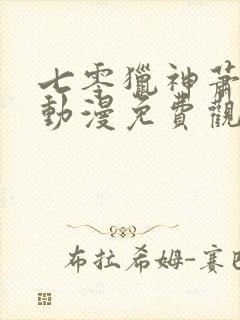 七零獵神蕭
動漫免費觀
布拉希姆-賽巴